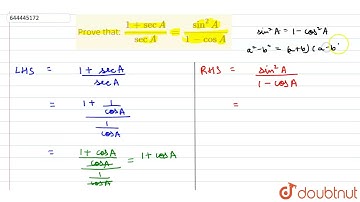 644445172
Prove that: (1 + sec A)/(sec A) = (sin² A)/(1 - cos A)
sin²A = 1 - cos²A
a²-b² = (a+b)(a-b)
LHS = (1 + secA)/(secA)
= (1 + 1/cosA)/(1/cosA)
= ((1 + cosA)/cosA)/(1/cosA) = 1 + cosA
RHS = (sin²A)/(1 - cosA)
=
doubtnut